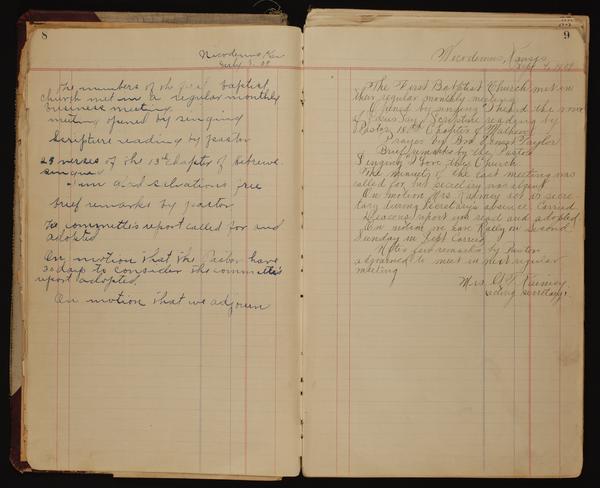 8
Nicodemus, Kan
The members of the first baptist
church met in a regular monthly
business meeting
meeting opened by singing
Scripture reading by pastor
23 verses of the 13th chapter of Hebrews
singing
I am glad salvations free
brief remarks by pastor
The committe's report called for and
adopted
On motion that the Pastor have
30 days to consider the committe's
report adopted.
On motion that we adjourn
9
Nicodemus, Kansas
The First Baptist Church met in
their regular monthly meeting
Opened by singing
Scripture reading by
Pastor 18th Chapter of Mathew
Prayer by Bro Taylor
Brief remarks by the Pastor
Singing I love thy Church
The minutes of the last meeting was
called for but secretary was absent
On motion Mrs Rainey act as secre-
tary during secretary's absence carried
Deacons report was read and adopted
On motion we have Rally on second
Sunday in Sept carried
After few remarks by Pastor
adjourned to meet in next regular
meeting
Mrs. Rainey
acting secretary.